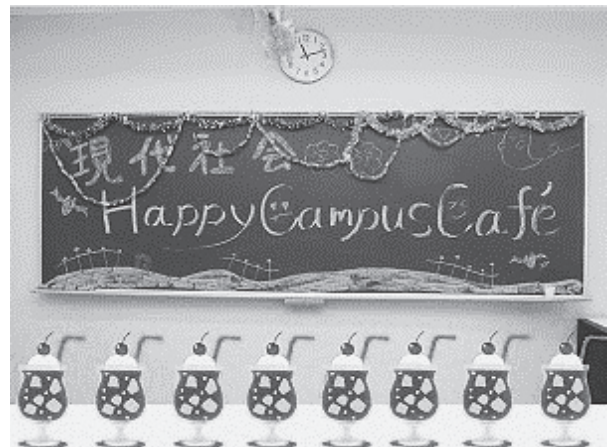 現代社会
Happy Campus Café